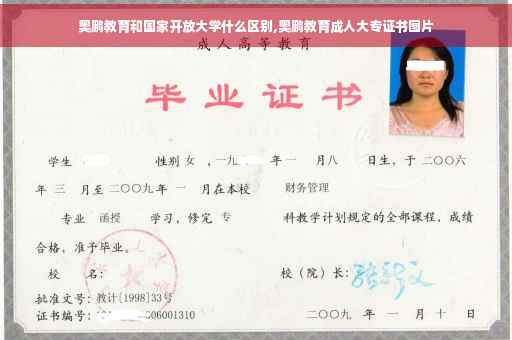 奥鹏教育和国家开放大学什么区别,奥鹏教育成人大专证书图片
成人高等教育
毕业证书
学生 性别 女 ,一九 年一 月八 日生,于二〇〇六
年 三 月至二〇〇九年 一 月在本校 财务管理
专业 函授 学习,修完 专 科教学计划规定的全部课程,成绩
合格,准予毕业。
校 名: 校(院)长:
批准文号:教计[1998]33号
证书编号: 06001310 二〇〇九 年 一 月 十 日